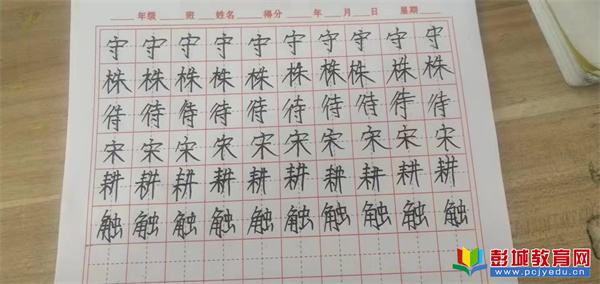 年级 班 姓名 得分 年 月 日 星期
守 守 守 守 守 守 守 守 守 守
株 株 株 株 株 株 株 株 株 株
待 待 待 待 待 待 待 待 待 待
宋 宋 宋 宋 宋 宋 宋 宋 宋 宋
耕 耕 耕 耕 耕 耕 耕 耕 耕 耕
触 触 触 触 触 触 触 触 触 触
彭城教育网
www.pcjyedu.cn